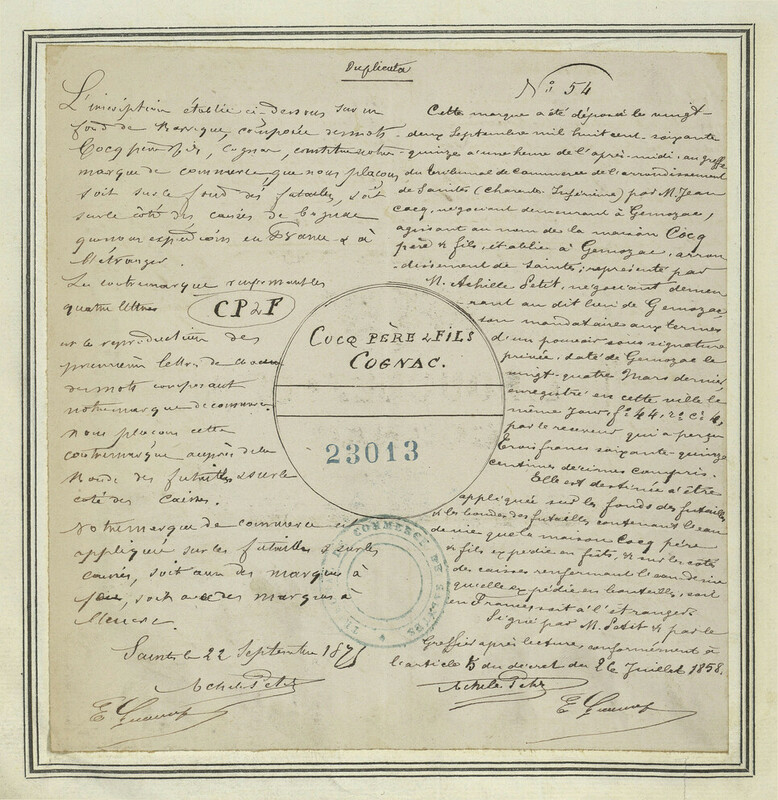 Duplicata
L'inscription établie ci-dessous sur un
fond de Barrique, composée des mots
Cocq père & fils, Cognac, constitue notre
marque de commerce que nous plaçons
soit sur le fond des futailles, soit
sur le côté des caisses de Cognac
que nous expédions en France & à
l'étranger.
La contremarque renfermant les
quatre lettres
CP&F
est la reproduction des
premières lettres de chacun
des mots composant
notre marque de commerce.
Nous plaçons cette
contremarque auprès de la
Bonde des futailles & sur le
côté des caisses.
Notre marque de commerce est
appliquée sur les futailles & sur les
caisses, soit avec des marques à
feu, soit avec des marques à
l'encre.
Saintes le 22 Septembre 1875
Achille Petit
COCQ PÈRE & FILS
COGNAC.
23013
COMMERCE DE SAINTES
No 54
Cette marque a été déposée le vingt-
deux Septembre mil huit cent soixante
quinze à une heure de l'après-midi au greffe
du Tribunal de Commerce de l'arrondissement
de Saintes (Charente Inférieure) par M. Jean
Cocq, négociant demeurant à Gemozac,
agissant au nom de la maison Cocq
père & fils, établie à Gemozac, arron-
-dissement de Saintes; représenté par
M. Achille Petit, négociant demeu-
rant au dit lieu de Gemozac,
son mandataire aux termes
d'un pouvoir sous signature
privée, daté de Gemozac le
vingt-quatre Mars dernier
enregistré en cette ville le
même jour, fo 44, ro c. 4,
par le receveur qui a perçu
trois francs soixante-quinze
centimes décimes compris.
Elle est destinée à être
appliquée sur les fonds des futailles
& les bondes des futailles contenant l'eau
de vie que la maison Cocq père
& fils expédie en fûts, & sur les côtés
des caisses renfermant l'eau de vie
qu'elle expédie en bouteilles, soit
en France, soit à l'étranger.
Signé par M. Petit & par le
Greffier après lecture, conformément à
l'article 5 du décret du 26 Juillet 1858.
Achille Petit